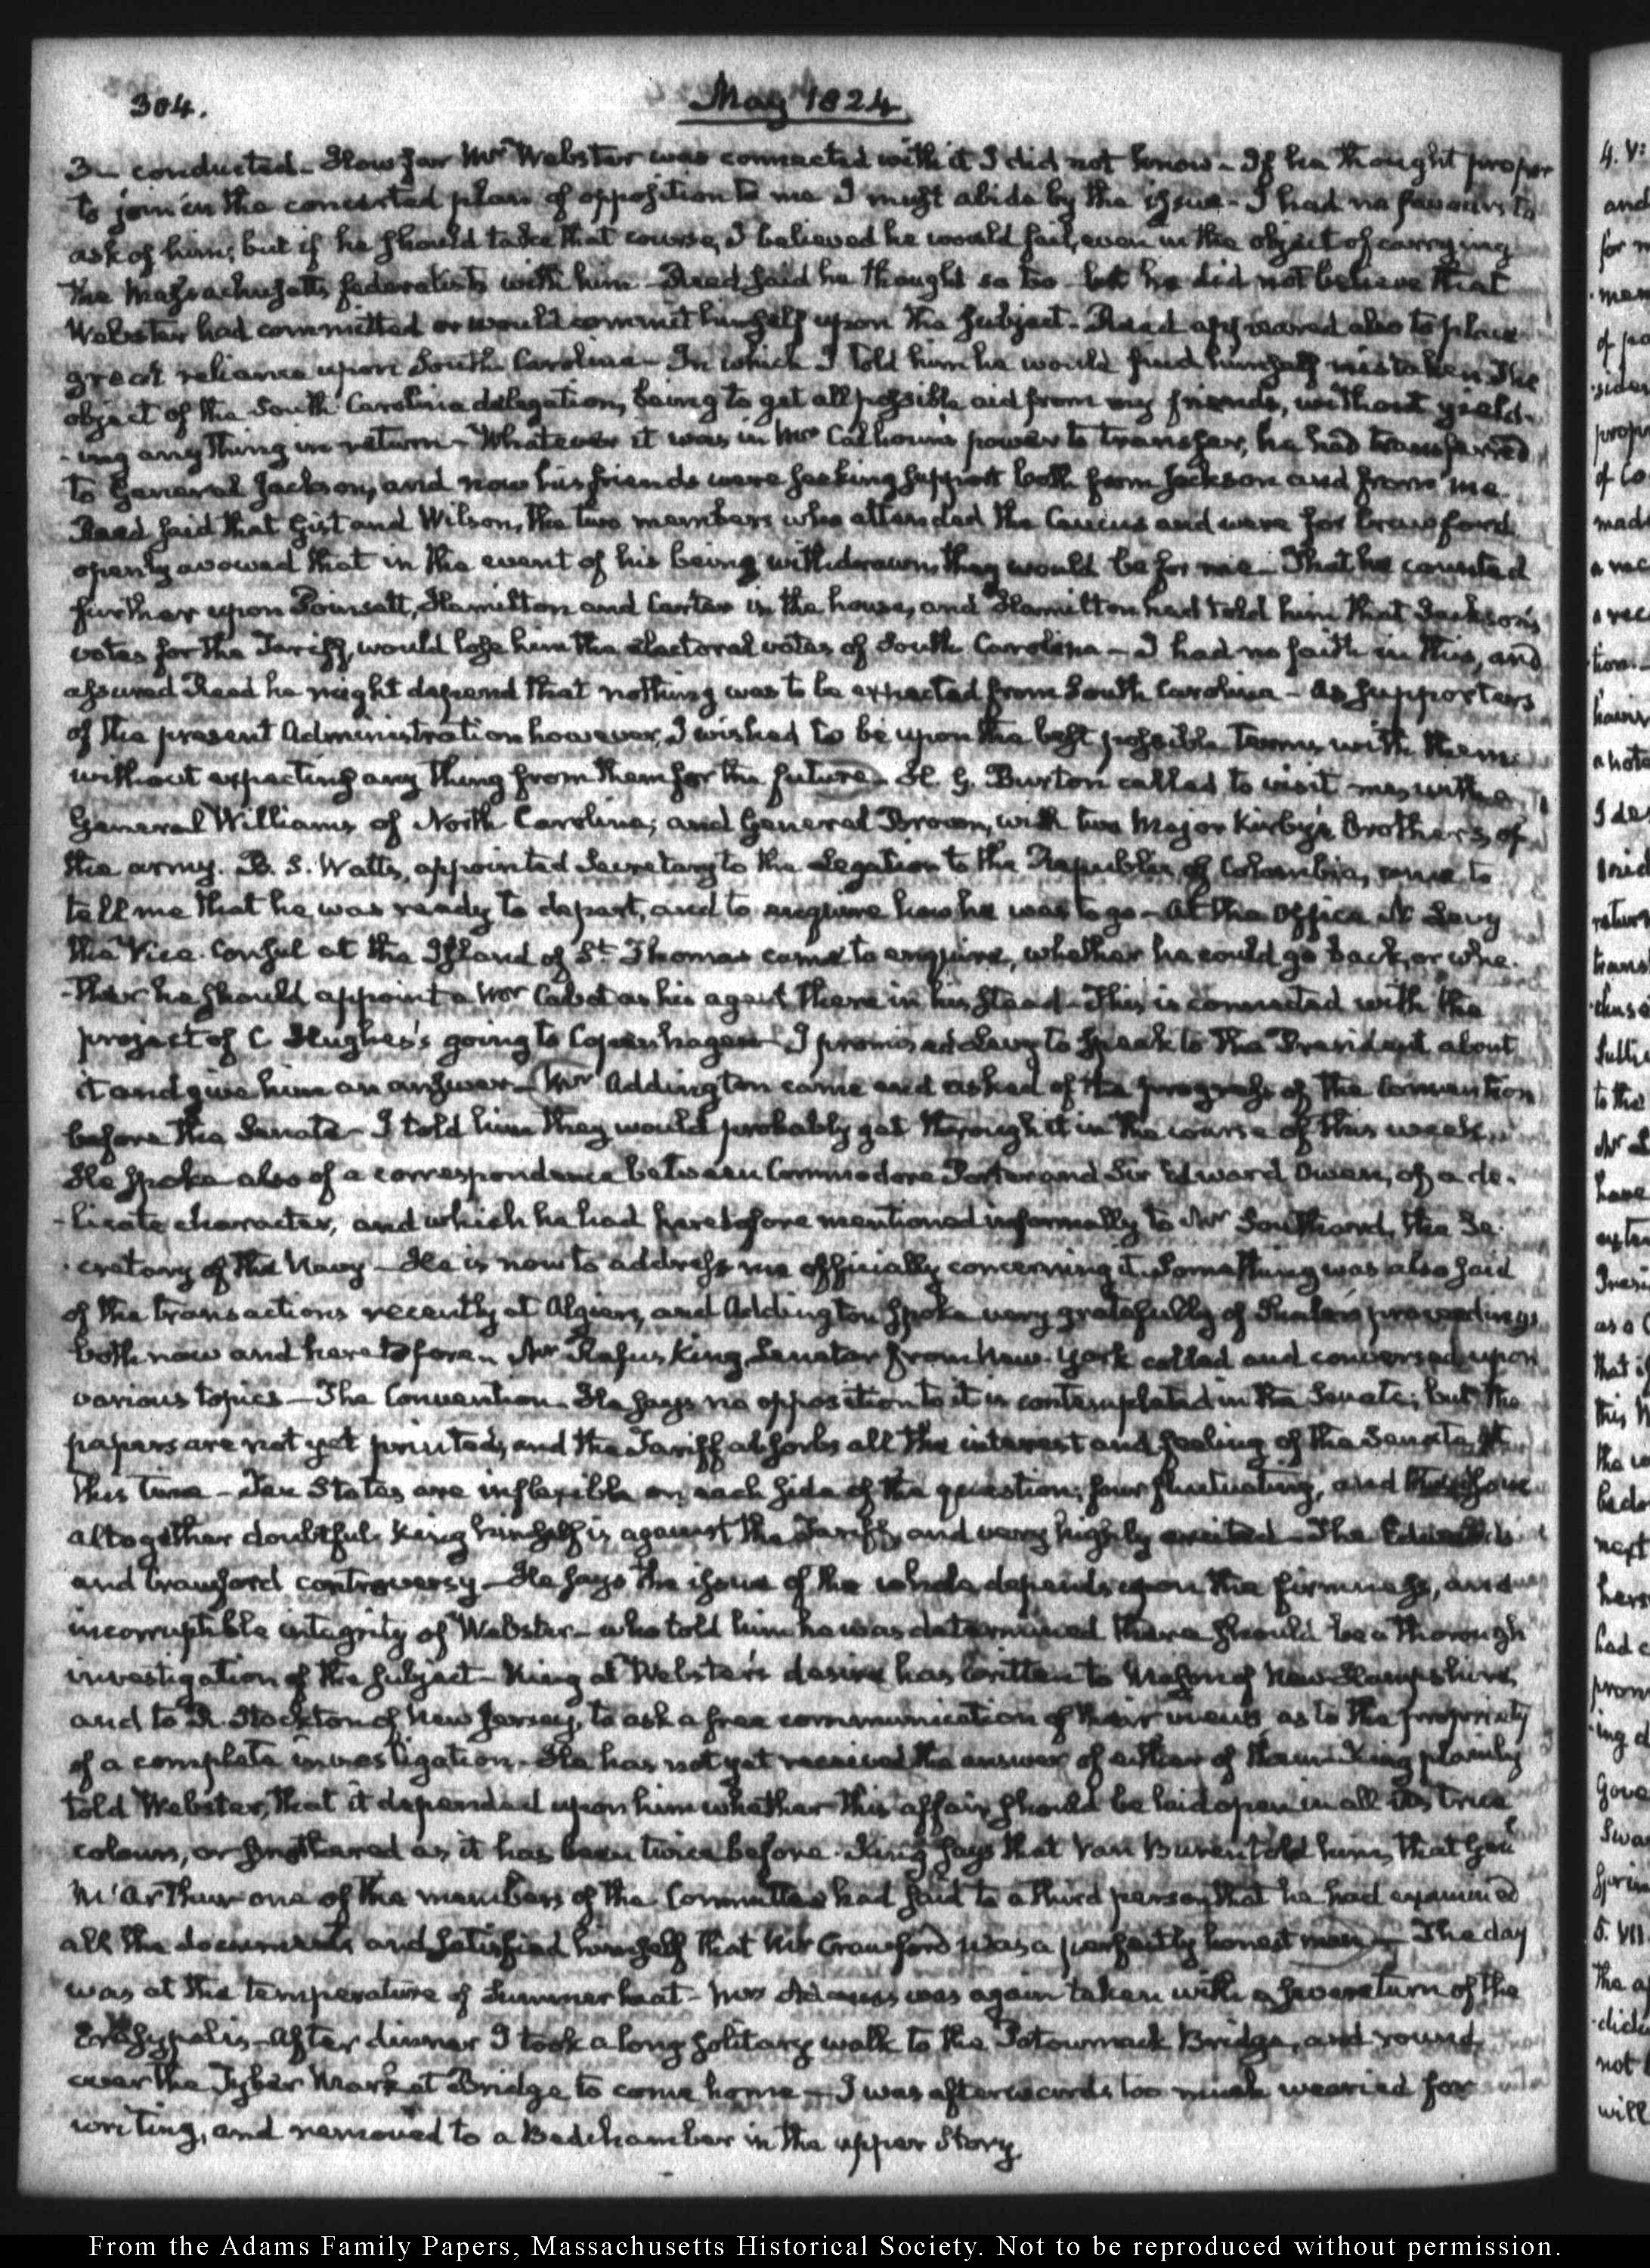 304.
May 1824
3— conducted. How far Mr Webster was connected with it I did not know. If he thought proper
to join in the concerted plan of opposition to me I must abide by the issue. I had no favours to
ask of him; but if he should take that course, I believed he would fail, even in the object of carrying
the Massachusetts federalists with him. Reed said he thought so too but he did not believe that
Webster had committed or would commit himself upon the subject. Reed appeared also to place
great reliance upon South Carolina— In which I told him he would find himself mistaken. The
object of the South Carolina delegation, being to get all possible aid from my friends, without yield-
-ing any thing in return— Whatever it was in Mr Calhoun's power to transfer, he had transferred
to General Jackson, and now his friends were seeking support both from Jackson and from me.
Reed said that Gist and Wilson, the two members who attended the Caucus and were for Crawford
openly avowed that in the event of his being withdrawn they would be for me— That he counted
further upon Poinsett, Hamilton and Carter in the house, and Hamilton had told him that Jackson's
votes for the Tariff, would lose him the electoral votes of South Carolina— I had no faith in this, and
assured Reed he might depend that nothing was to be expected from South Carolina— As supporters
of the present Administration however, I wished to be upon the best possible terms with them
without expecting any thing from them for the future. H. G. Burton called to visit me, with a
General Williams of North Carolina; and General Brown, with two Major Kirby's Brothers, of
the army. B. S. Watts, appointed Secretary to the Legation to the Republic of Colombia, came to
tell me that he was ready to depart, and to enquire how he was to go— At the Office N Levy
the Vice-Consul at the Island of St. Thomas came to enquire, whether he could go back, or whe-
-ther he should appoint a Mr Cabot as his agent there in his stead— This is connected with the
project of C Hughes's going to Copenhagen— I promised Levy to speak to the President about
it and give him an answer— Mr Addington came and asked of the progress of the Convention
before the Senate— I told him they would probably get through it in the course of this week.
He spoke also of a correspondence between Commodore Porter and Sir Edward Owen, of a de-
-licate character, and which he had heretofore mentioned informally to Mr Southard, the Se-
-cretary of the Navy— He is now to address me officially concerning it. Something was also said
of the transactions recently at Algiers, and Addington spoke very gratefully of Shaler's proceedings
both now and heretofore. Mr Rufus King, Senator from New-York called and conversed upon
various topics— The Convention. He says no opposition to it is contemplated in the Senate; but the
papers are not yet printed, and the Tariff absorbs all the interest and feeling of the Senate at
this time— Ten States are inflexible on each side of the question; four fluctuating, and
altogether doubtful. King himself is against the Tariff, and very highly excited— The Edwards
and Crawford controversy— He says the issue of the whole depends upon the firmness, and
incorruptible integrity of Webster— who told him he was determined there should be a thorough
investigation of the subject— King at Webster's desire has written to Mason of New-Hampshire
and to R. Stockton of New Jersey, to ask a free communication of their views as to the propriety
of a complete investigation. He has not yet received the answer of either of them. King plainly
told Webster, that it depended upon him whether this affair should be laid open in all its true
colours, or smothered as it has been twice before. King says that Van Buren told him, that Genl
McArthur one of the members of the Committee had said to a third person that he had examined
all the documents and satisfied himself that Mr Crawford was a perfectly honest man— The day
was at the temperature of Summer heat— Mrs Adams was again taken with a severe return of the
Erysipelas— After dinner I took a long solitary walk to the Potowmack Bridge, and round
over the Tyber Market Bridge to come home— I was afterwards too much wearied for
writing, and removed to a Bedchamber in the upper Story.
From the Adams Family Papers, Massachusetts Historical Society. Not to be reproduced without permission.